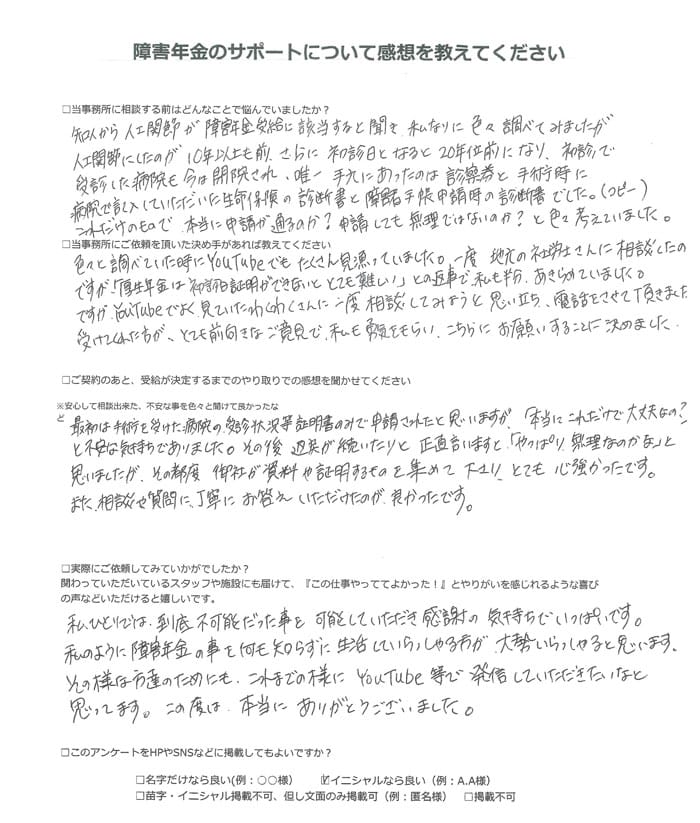 障害年金のサポートについて感想を教えてください
□当事務所に相談する前はどんなことで悩んでいましたか？
知人から人工関節が障害年金受給に該当すると聞き、私なりに色々調べてみましたが
人工関節にしたのが10年以上も前、さらに初診日となると20年位前になり、初診で
受診した病院も今は閉院され、唯一手元にあったのは診察券と手術時に
病院で記入していただいた生命保険の診断書と障害者手帳申請時の診断書でした。(コピー)
これだけのもので本当に申請が通るのか？申請しても無理ではないのか？と色々考えていました。
□当事務所にご依頼を頂いた決め手があれば教えてください
色々と調べていた時にYouTubeでもたくさん見漁っていました。一度地元の社労士さんに相談したの
ですが「厚生年金は初診日証明ができないととても難しい」との返事で、私も半分あきらめていました。
ですがYouTubeでよく見ていたわくわくさんに一度相談してみようと思い立ち、電話をさせて頂きました
受けてくれた方が、とても前向きなご意見で、私も勇気をもらい、こちらにお願いすることに決めました。
□ご契約のあと、受給が決定するまでのやり取りでの感想を聞かせてください
※安心して相談出来た、不安な事を色々と聞けて良かったな
ど
最初は手術を受けた病院の受診状況等証明書のみで申請されたと思いますが、「本当にこれだけで大丈夫なの？」
と不安な気持ちでありました。その後返戻が続いたりと正直言いますと「やっぱり無理なのかな」と
思いましたが、その都度御社が資料や証明するものを集めて下さり、とても心強かったです。
また、相談や質問に、丁寧にお答えいただけたのが、良かったです。
□実際にご依頼してみていかがでしたか？
関わっていただいているスタッフや施設にも届けて、『この仕事やっててよかった！』とやりがいを感じれるような喜び
の声などいただけると嬉しいです。
私ひとりでは、到底不可能だった事を可能していただき感謝の気持ちでいっぱいです。
私のように障害年金の事を何も知らずに生活していらっしゃる方が大勢いらっしゃると思います。
その様な方達のためにも、これまでの様にYouTube等で発信していただきたいなと
思ってます。この度は、本当にありがとうございました。
□このアンケートをHPやSNSなどに掲載してもよいですか？
□名字だけなら良い(例：○○様) ☑イニシャルなら良い（例：A.A様）
□苗字・イニシャル掲載不可、但し文面のみ掲載可（例：匿名様） □掲載不可